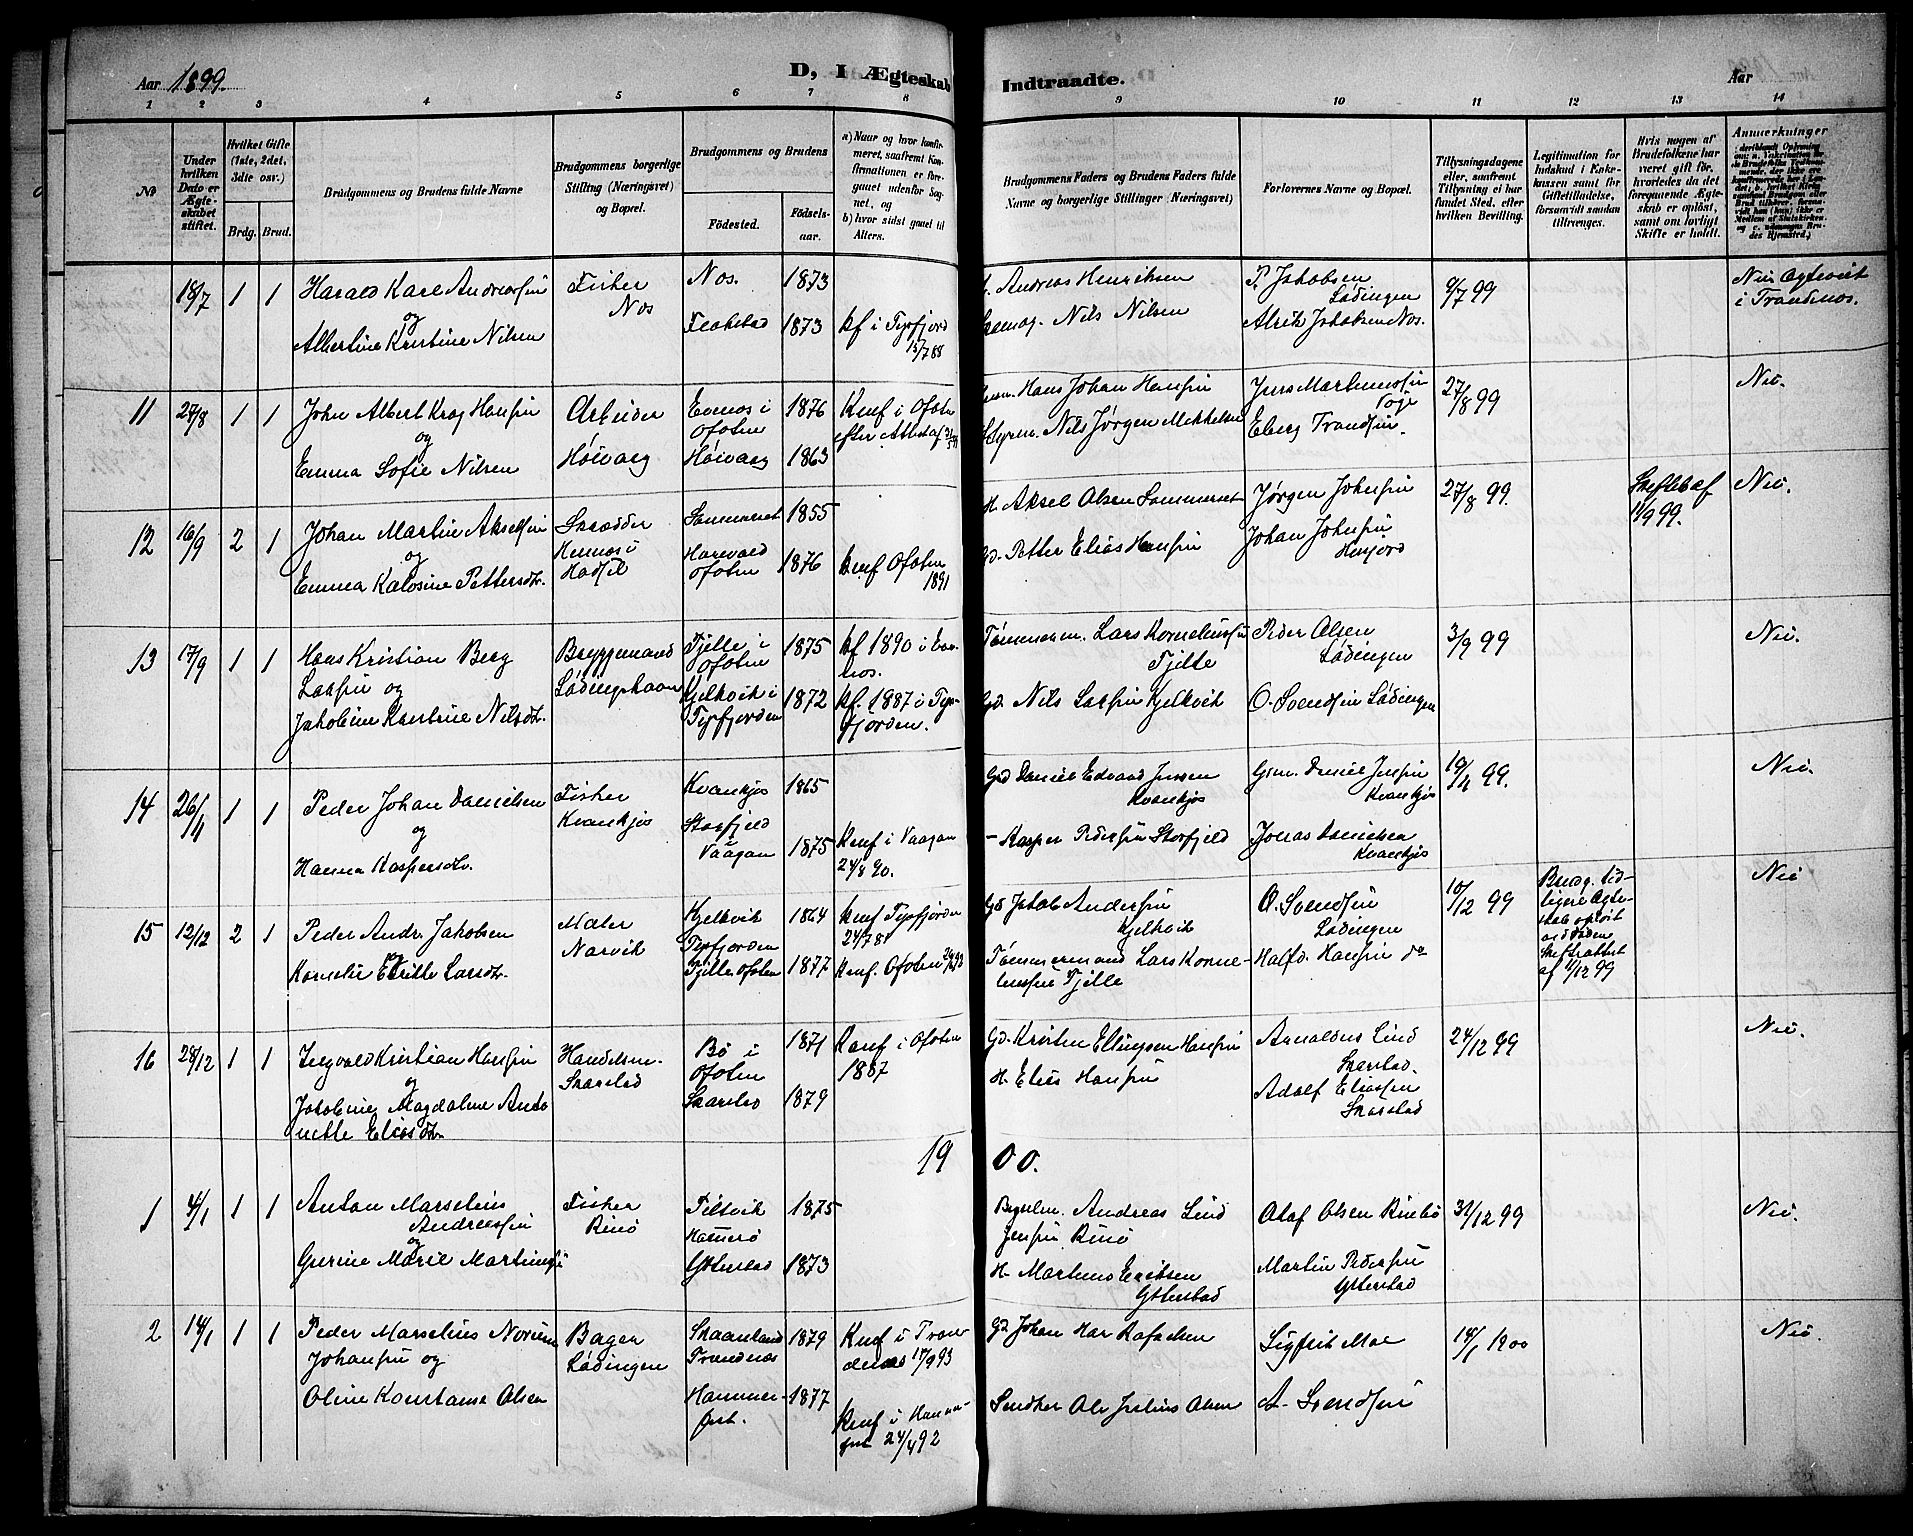 Aar 1899.
D, I Ægteskab Indtraadte.
Aar
1 2 3 4 5 6 7 8 9 10 11 12 13 14
No
Under hvilken Dato er Ægteskabet stiftet.
Hvilket Gifte (1ste, 2det, 3die osv.)
Brdg. Brud.
Brudgommens og Brudens fulde Navne
Brudgommens borgerlige Stilling (Næringsvei) og Bopæl.
Brudgommens og Brudens
Födested.
Födselsaar.
a) Naar og hvor konfirmeret, saafremt Konfirmationen er foregaaet udenfor Sognet, og
b) hvor sidst gaaet til Alters.
Brudgommens Faders og Brudens Faders fulde Navne og borgerlige Stillinger (Næringsvei)
Forlovernes Navne og Bopæl.
Tillysningsdagene eller, saafremt Tillysning ei har fundet Sted, efter hvilken Bevilling.
Legitimation for Indskud i Enkekassen samt for Giftetilladelse, forsaavidt saadan tiltrænges.
Hvis nogen af Brudefolkene har været gift för, hvorledes da det foregaaende Ægteskab er oplöst, samt om lovligt Skifte er holdt.
Anmærkninger
18/7 1 1 Harald Karl Andreassen
og
Albertine Kristine Nilsen
Fisker
Nos
Nos. 1873
1873 kf i Tysfjord
15/7 88
Andreas Henriksen
Nils Nilsen
P. Jakobsen
Lødingen
Alrik Jakobsen Nos.
9/7 99
Nei
i Trondenes.
11 27/8 1 1 John Albert Krog Hansen
og
Emma Sofie Nilsen
Arbeider
Evenes i
Ofoten
1876
1863
Konf i Ofoten
efter Attest af
Hans Johan Hansen
Nils Jørgen Mikkelsen
Jens Martinussen
Eberg Trondsen.
27/8 99
Nei.
12 16/9 2 1 Johan Martin Akselsen
og
Emma Kalosine Pettersdtr.
Skrædder
Hennes i
Hadsel
Sommerset
Ofoten
1855
1876
Konf Ofoten
1891
H. Aksel Olsen Sommerset
Gd. Petter Elias Hansen
Jørgen Johnsen
Johan Johnsen
27/8 99.
11/9 99.
Nei.
13 17/9 1 1 Hans Kristian Berg
Larsen og
Jakobine Kristine Nilsdtr.
Bryggemand
Lødingshavn
Fjelle i
Ofoten
Kjelkvik i
Tysfjorden
1875
1872
kf 1890 i Eve-
nes.
kf. 1887 i Tys-
fjorden.
Tømmerm. Lars Korneliussen
Fjelle
Gd. Nils Larsen Kjelkvik
Peder Olsen
Lødingen
O. Svendsen Lødingen
3/9 99
Nei.
14 26/11 1 1 Peder Johan Danielsen
og
Hanna Kaspersdtr.
Fisker
Kvankjos
Kvankjos
Storfjeld
Vaagan
1865
1875
Konf i Vaagan
24/8 90.
Gd Daniel Edvard Jensen
Kvankjos
- Kasper Pedersen Storfjeld
Grm. Daniel Jensen
Kvankjos
Jonas Danielsen
Kvankjos
19/11 99.
Nei.
15 12/12 2 1 Peder Andr. Jakobsen
og
Kornelie Larsdtr.
Maler
Narvik
Kjelkvik
Tysfjorden
Fjelle Ofoten
1864
1877
Konf Tysfjorden
24/7 81
Konf. Ofoten
Gd Jakob Andersen
Kjelkvik
Tømmermand Lars Korne-
liussen Fjelle
O. Svendsen
Lødingen
Halfd. Hansen do
10/12 99
Brudg. tid-
ligere Ægte-
skab opløst
ved Døden
Skifteattest
af 11/12 99
Nei
16 28/12 1 1 Ingvald Kristian Hansen
og
Jakobine Magdaline Anto
nette Eliasdtr.
Handelsm.
Skarstad
Bø i
Ofoten
Skarstad
1871
1879
Konf i Ofoten
1887
Gd. Kristen Ellingsen Hansen
H. Elias Hansen
Arnoldus Lind
Skarstad.
Adolf Eliassen
Skarstad
24/12 99
Nei.
1900.
1 4/1 1 1 Anton Marselius
Andreassen
og
Gurine Marie Martinus
Fisker
Rinø
Hamerø
Ytterstad
1875
1873
Andreas Lind
Jensen Rinø
H. Martinus Eriksen
Ytterstad
Olaf Olsen Rinø
Martin Pedersen
Ytterstad
31/12 99
Nei.
2 14/1 1 1 Peder Marselius Norum
Johansen og
Oline Konstanse Olsen
Bager
Lødingen
Skaanland
Trondenæs
Hammer-
fest.
1879
1877
Konf i Tron-
denæs 17/9 93
Konf i Hamme
fest 24/4 92
Gd Johan Rafaelsen
Ole Julius Olsen
Sigfrit Moe
A. Svendsen
14/1 1900
Nei.